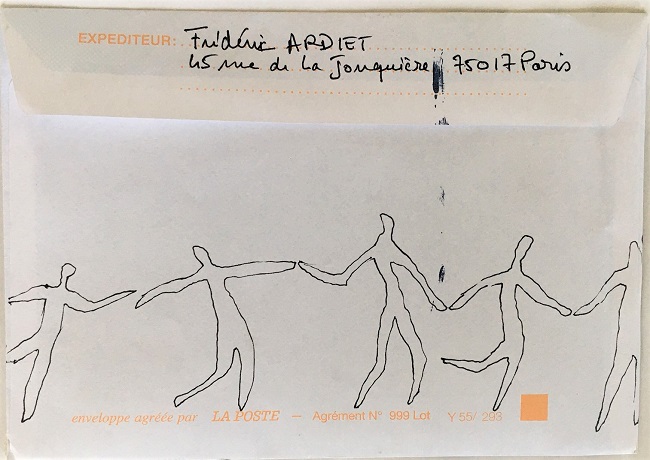 EXPEDITEUR: Frédéric ARDIET
45 rue de La Jonquière 75017 Paris
enveloppe agréée par LA POSTE — Agrément N° 999 Lot Y 55/ 293